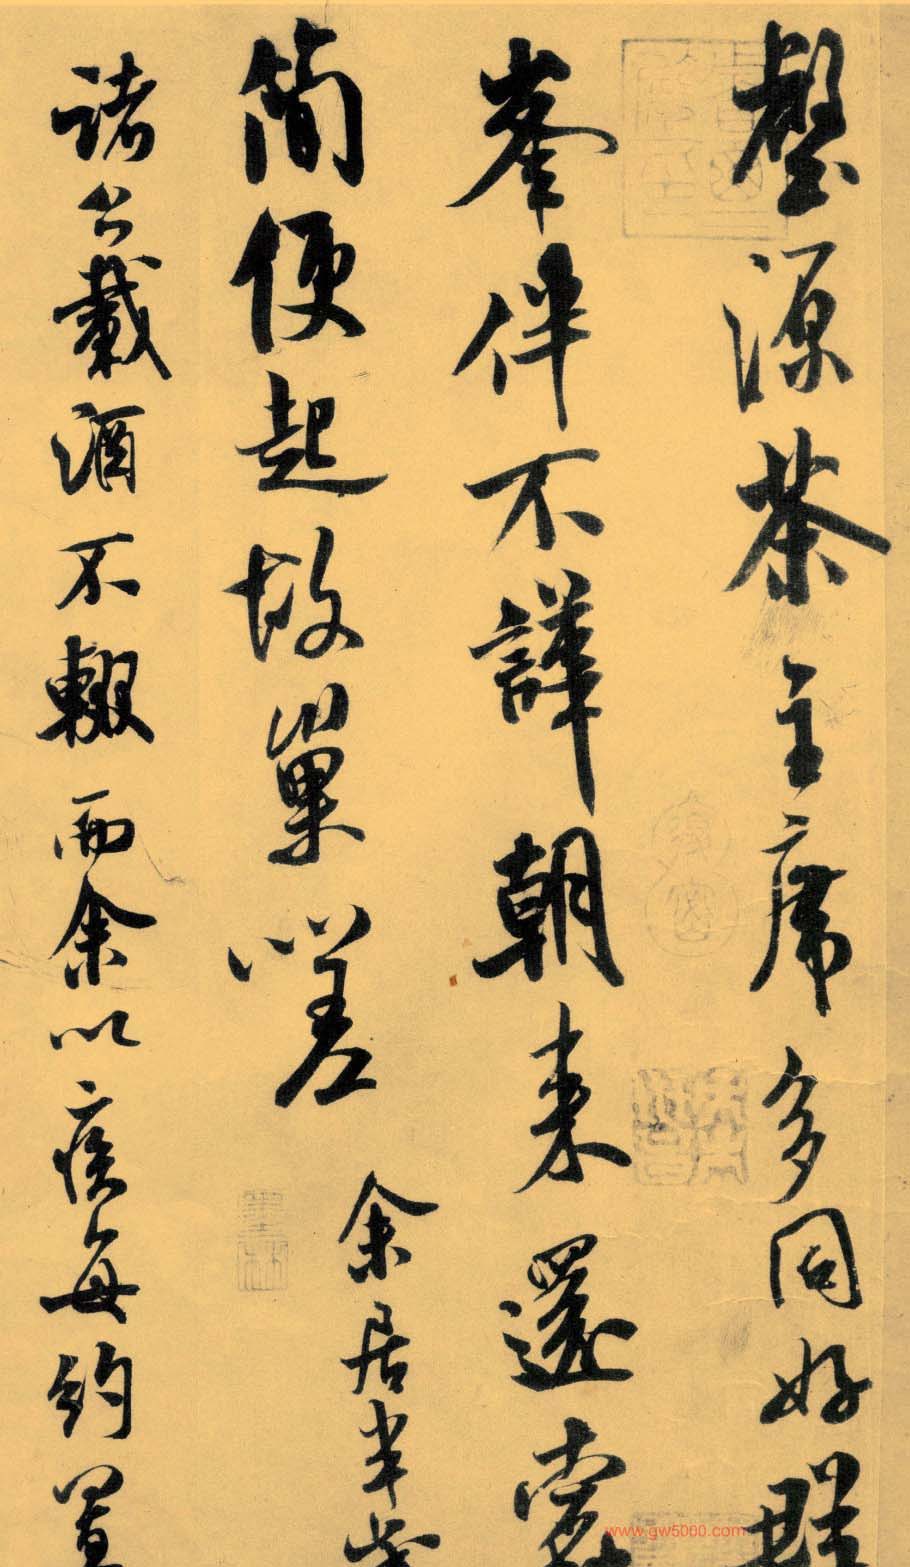 壑源茶主席多同好群
峯伴不譁朝来還蠹
簡便起故巢嗟
余居半歲
諸公載酒不輟而余以疾每約置
www.gw5000.com